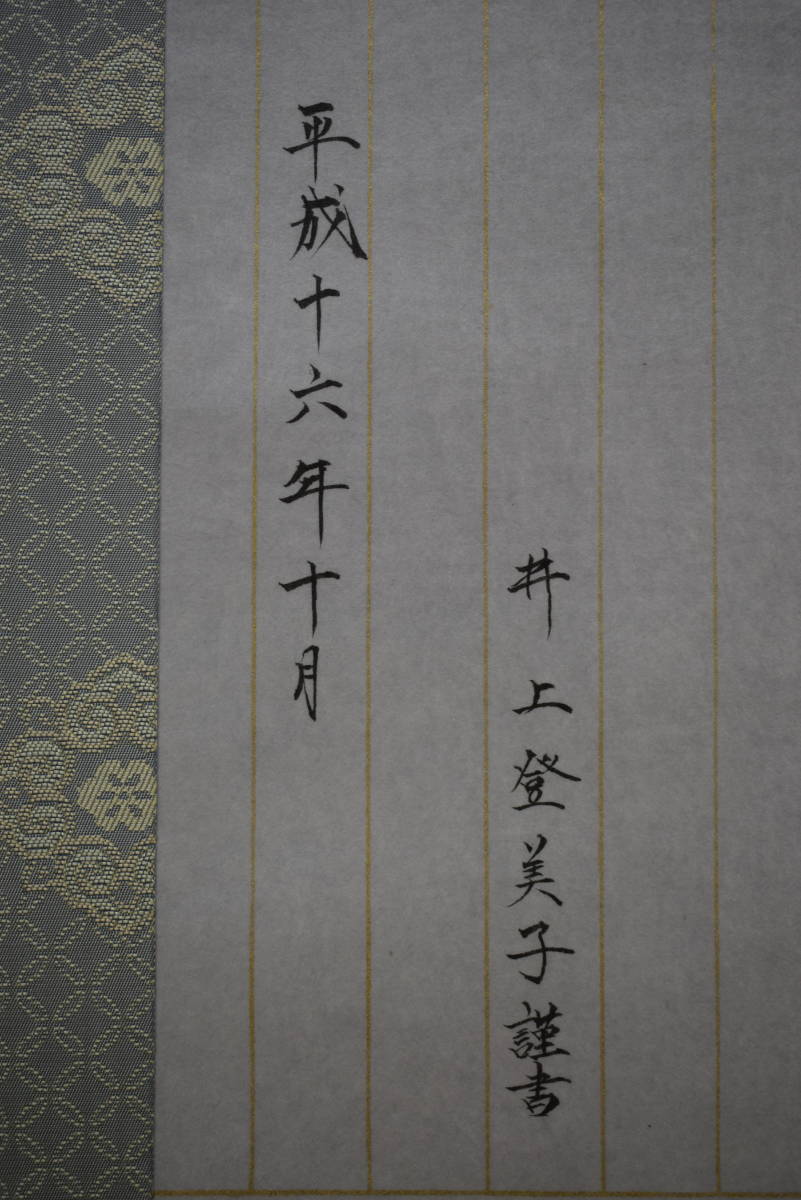 井上登美子謹書
平成十六年十月